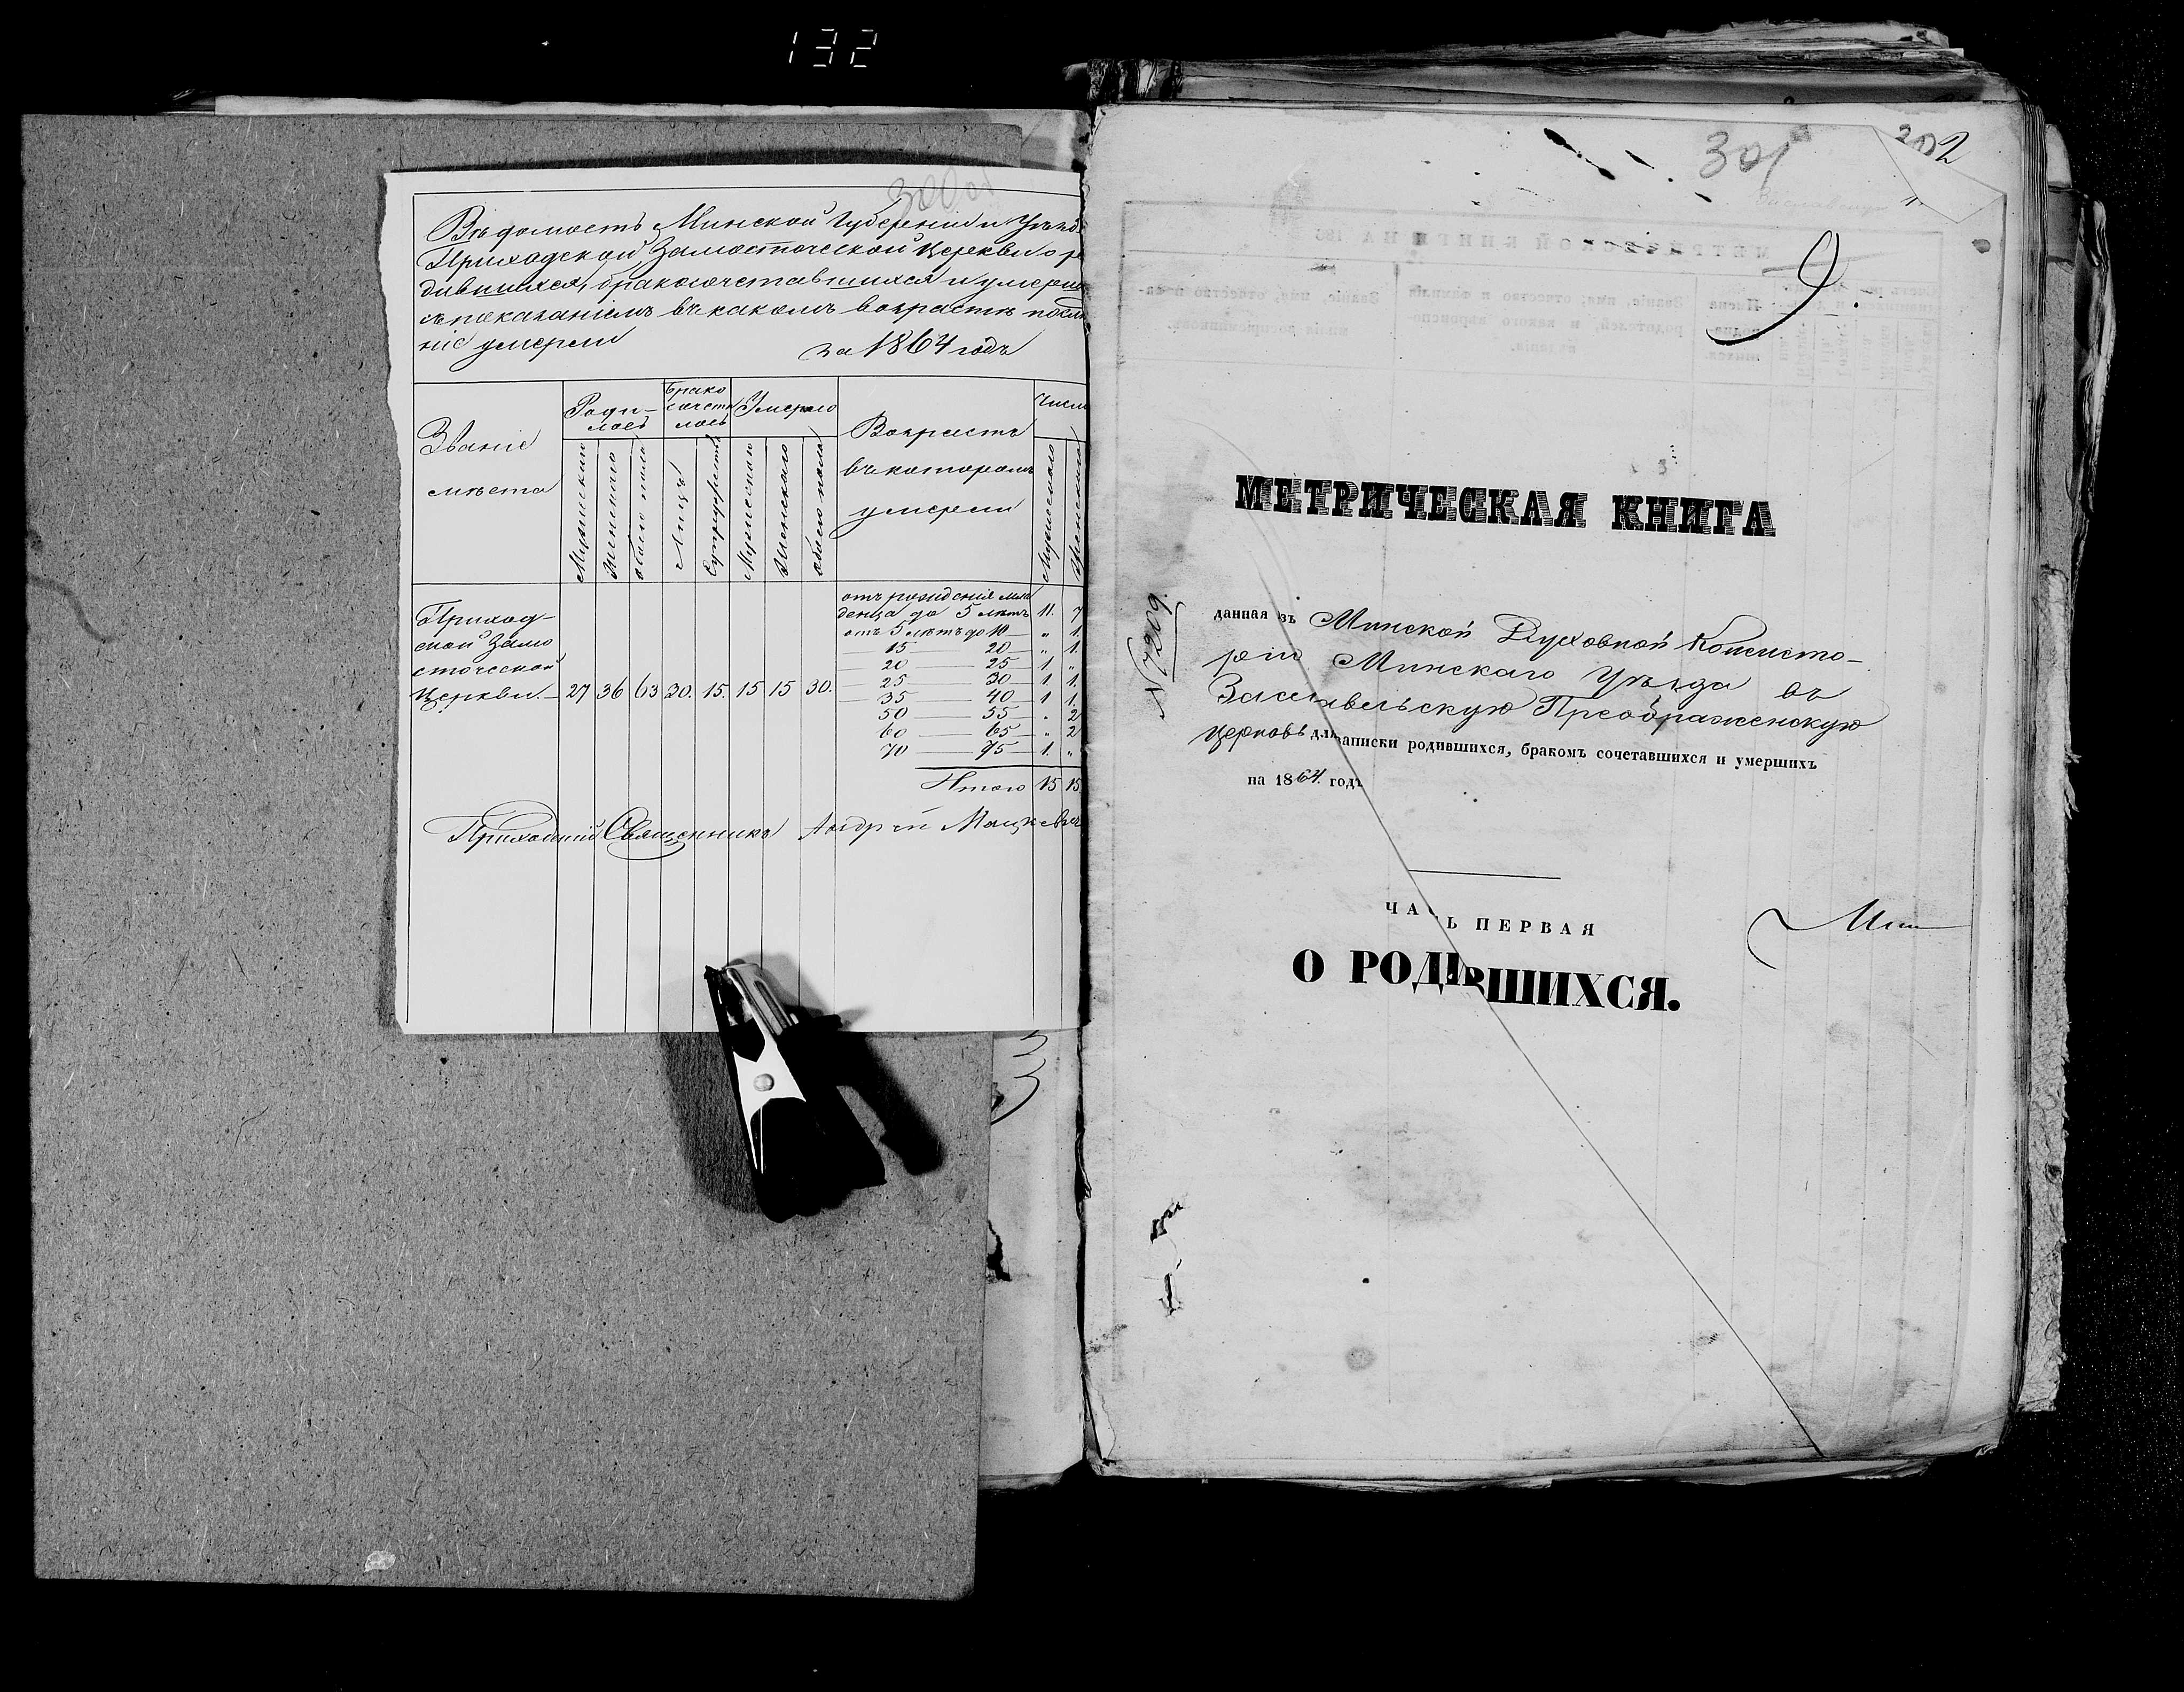 132
Вѣдомость Минской Губерніи и Уѣзд
Приходской Замосточской Церкви о ро
дившихся, бракосочетавшихся и умерш
съ показаніемъ въ какомъ возрастѣ послѣд
ніе умерли за 1864 годъ
Званіе мѣста
Роди-лось
Брако сочета лось
Умерло
Возрастъ въ которомъ умерли
Число
Мужескаго
Женскаго
обоего пола
Лицъ
Супружествъ
Мужескаго
Женскаго
обоего пола
Мужескаго
Женскаго
Приход-
ской Замо
сточской
Церкви.— 27 36 63 30. 15. 15 15 30.
отъ рожденія мла
денца до 5 лѣтъ 11. 7
отъ 5 лѣтъ до 10 — „ 1.
— 15 — 20 — „ 1.
— 20 — 25 — 1. „
— 25 — 30 — 1. 1.
— 35 — 40 — 1 1.
50 — 55 — „ 2
60 — 65 — „ 2
70 — 75 — 1. „
Итого 15 15.
Приходскій Священникъ Андрей Мацкевич
301
302
9.
МЕТРИЧЕСКАЯ КНИГА
№ 7209.
данная изъ Минской Духовной Консисто-
ріи Минскаго Уѣзда въ
Заславльскую Преображенскую
церковь для записки родившихся, бракомъ сочетавшихся и умершихъ
на 1864. годъ
ЧАСТЬ ПЕРВАЯ
О РОДИВШИХСЯ.